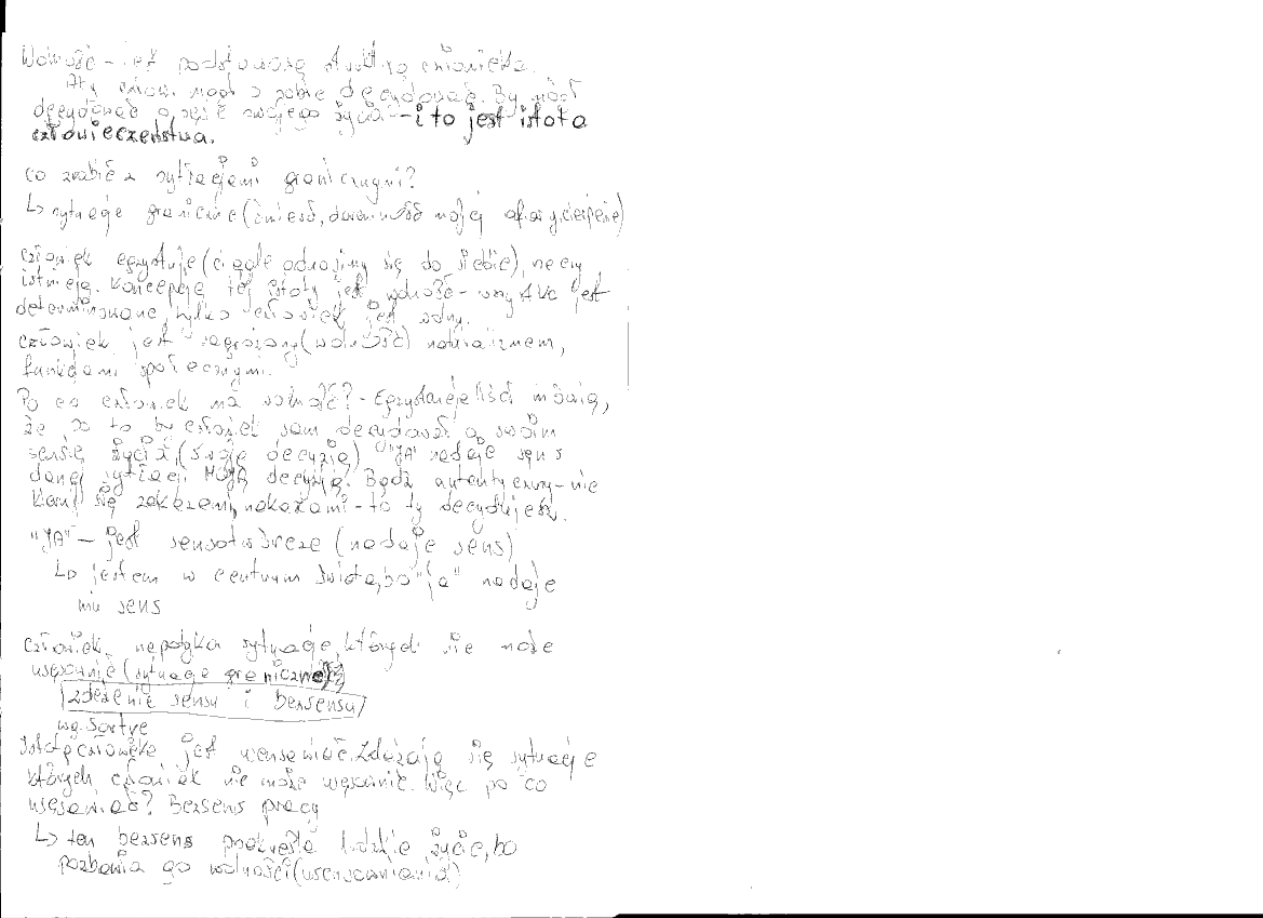 Wolność - jest podstawową strukturą człowieka.
Aby człow. mógł o sobie decydować. By mógł
decydować o sęsie swojego życia - i to jest istota
człowieczeństwa.
co zrobić z sytuacjami granicznymi?
↳ sytuacje graniczne (śmierć, daremność mojej ofiary, cierpienie)
człowiek egzystuje (ciągle odnosimy się do siebie), rzeczy
istnieją. Koncepcją tej istoty jest wolność - wszystko jest
determinowane, tylko człowiek jest wolny.
człowiek jest zagrożony (wolność) naturalizmem,
funkcjami społecznymi.
Po co człowiek ma wolność? - Egzystencjaliści mówią,
że po to by człowiek sam decydował o swoim
sensie życia, (swoje decyzje) "JA" nadaje sens
danej sytuacji. MOJĄ decyzją. Bądź autentyczny - nie
karm się zakazami, nakazami - to ty decydujesz.
"JA" - jest sensotwórcze (nadaje sens)
↳ jestem w centrum świata, bo "ja" nadaje
mu sens
człowiek napotyka sytuacje, których nie może
usęsownić (sytuacje graniczne)
zderzenie sensu i bezsensu
wg. Sartre
Istotą człowieka jest usensawniać. Zdarzają się sytuacje
których człowiek nie może usęsownić. Więc po co
usęsawniać? Bezsens pracy
↳ ten bezsens przekreśla ludzkie życie, bo
pozbawia go wolności (usensowniania)